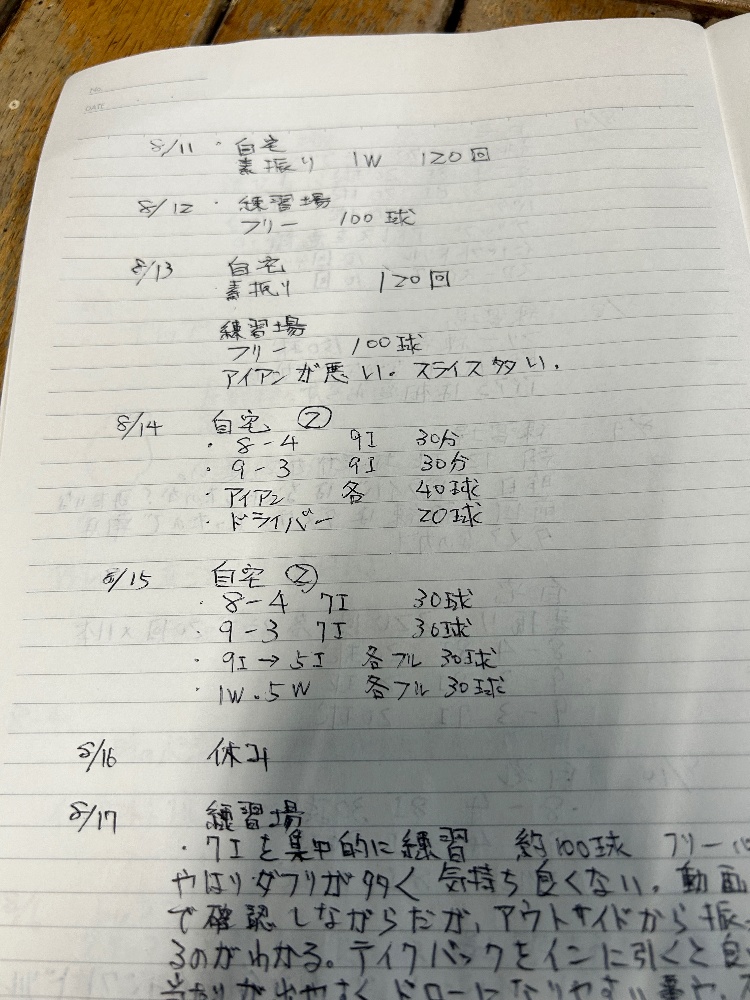 NO.
DATE
8/11 ・ 自宅
素振り 1W 120回
8/12 ・ 練習場
フリー 100球
8/13 自宅
素振り 120回
練習場
フリー 100球
アイアンが悪い。スライス多い。
8/14 自宅 ②
・8-4 9I 30分
・9-3 9I 30分
・アイアン 各 40球
・ドライバー 20球
8/15 自宅 ②
・8-4 7I 30球
・9-3 7I 30球
・9I→5I 各フル 30球
・1W.5W 各フル 30球
8/16 休み
8/17 練習場
・7Iを集中的に練習 約100球 フリー
やはりダフリが多く 気持ち良くない。動画
で確認しながらだが、アウトサイドから振
るのがわかる。テイクバックをインに引くと
当たりが出やすく ドローになりやすい